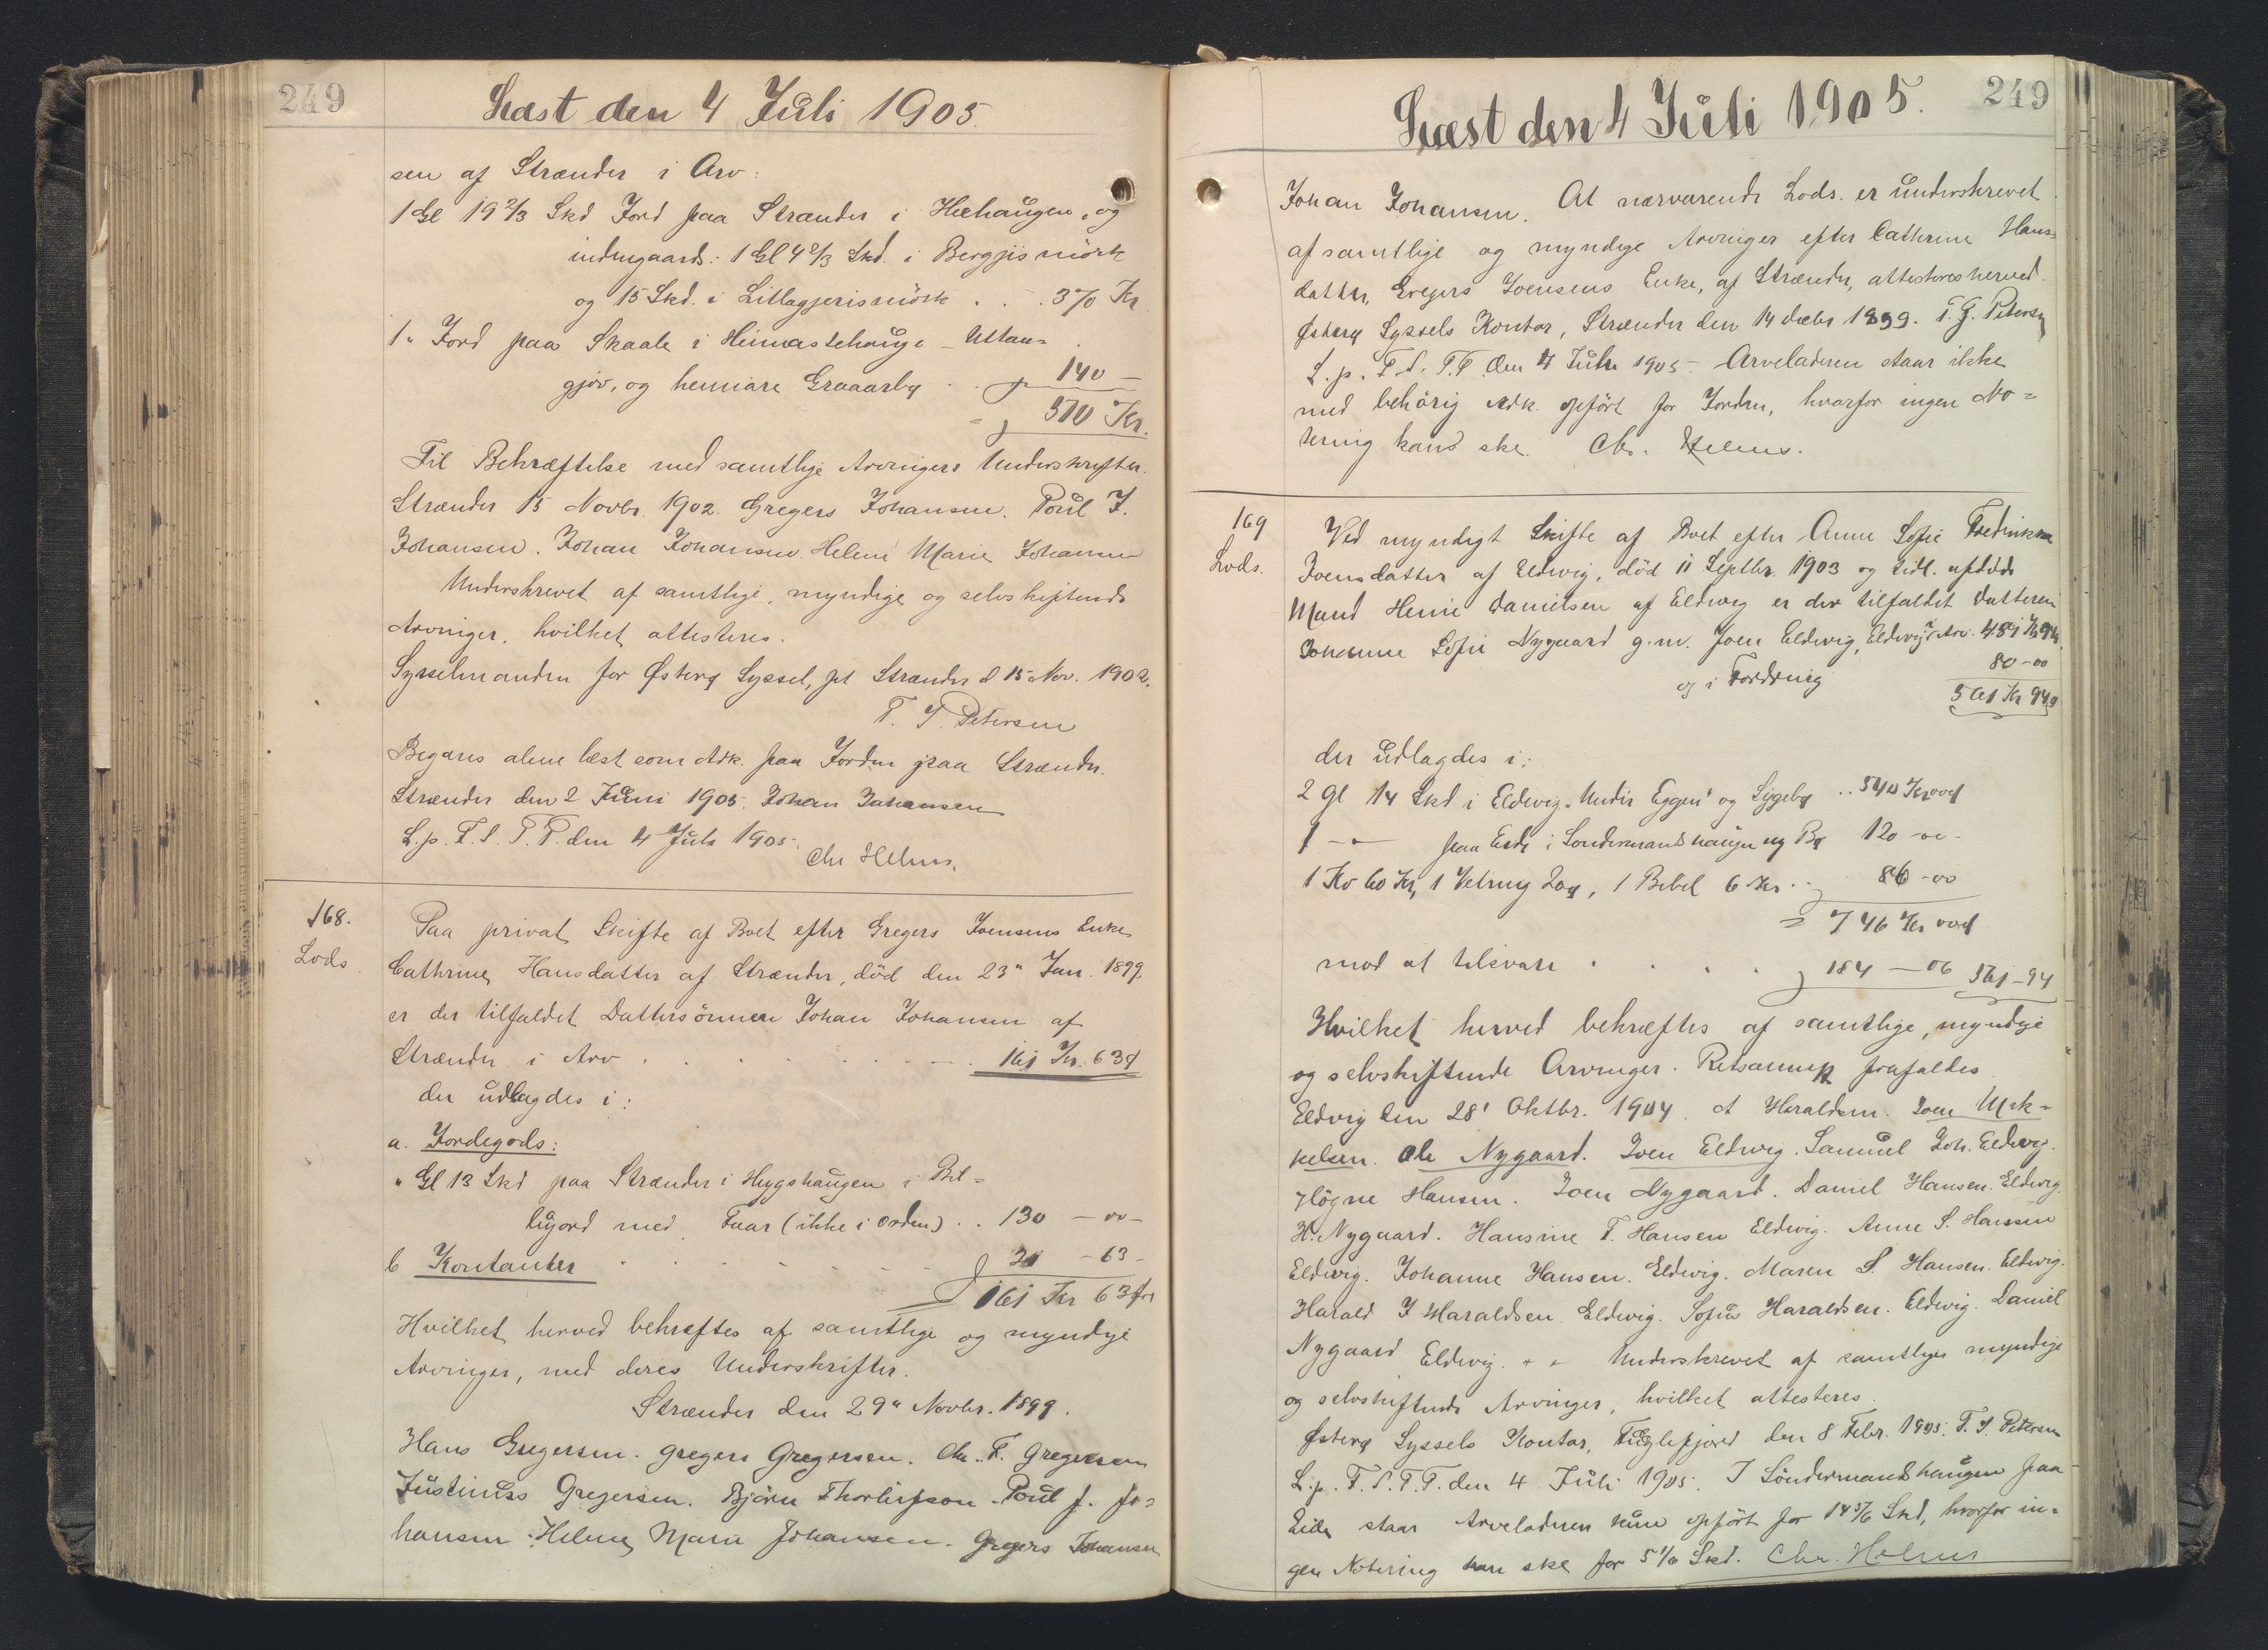 249
Læst den 4 Juli 1905.
sen af Strænder i Arv:
1 Gl 19 2/3 Skd Jord paa Strænder i Heehaugen, og
indengaards: 1 Gl 4 2/3 Skd. i Bergjismörk
og 15 Skd. i Litlagjerismörk . . . 370 Kr
1 " Jord paa Skaale i Heimastehauge - Uttan=
gjov, og henniare Graaarbq . . 140 -
= 510 Kr.
Til Bekræftelse med samtlige Arvingers Underskrifter.
Strænder 15 Novbr. 1902. Gregers Johansen. Poul J.
Johansen. Johan Johansen. Helene Marie Johansen
Underskrevet af samtlige, myndige og selvskiftende
Arvinger, hvilket attesteres.
Sysselmanden for Østerø Syssel, pt Strænder d 15 Nov. 1902.
T. J. Petersen
Begæres alene læst som Adk. paa Jorden paa Strænder.
Strænder den 2 Juni 1905. Johan Johansen
L. p. F. S. T. P. den 4 Juli 1905.
Chr Helms.
168.
Lods
Paa privat Skifte af Boet efter Gregers Joensens Enke
Cathrine Hansdatter af Strænder, död den 23" Jan. 1899
er der tilfaldet Dattersönnen Johan Johansen af
Strænder i Arv . . . . . . 161 Kr. 63 ø
der udlagdes i:
a. Jordegods:
" Gl 13 Skd paa Strænder i Hyggshaugen i Böl=
lujord med Faar (ikke i Orden) . . 130 - oo -
b Kontanter . . . . . . 31 - 63 -
161 Kr 63 Øre
Hvilket herved bekræftes af samtlige og myndige
Arvinger, med deres Underskrifter.
Strænder den 29" Novbr. 1899.
Hans Gregersen. Gregers Gregersen. Chr. F. Gregersen
Justinus Gregersen. Björn Thorleifsson. Poul J. Jo=
hansen. Helene Marie Johansen. Gregers Johansen
249
Læst den 4 Juli 1905.
Johan Johansen. At nærværende Lods. er underskrevet
af samtlige og myndige Arvinger efter Cathrine Hans=
datter, Gregers Joensens Enke, af Strænder, attesteres herved.
Østerø Syssels Kontor, Strænder den 14 decbr 1899. T. J. Petersen
L. p. F. S. T. P. den 4 Juli 1905. - Arveladeren staar ikke
med behörig Adk. opfört for Jorden, hvorfor ingen No=
tering kand ske. Chr. Helms.
169
Lods.
Ved myndigt Skifte af Boet efter Anne Sofie Fredrikka
Joensdatter af Eldevig, död 11 Septbr. 1903 og tidl. afdöde
Mand Henie Danielsen af Eldevig er der tilfaldet Datteren
Johanne Sofie Nygaard g. m. Joen Eldevig, Eldevig i Arv. 481 Kr 94 ø
og i Fordring 80 - oo
561 Kr 94 ø
der udlagdes i:
2 gl 14 Skd i Eldevig "Undir Eggen" og Lygeby . . 540 Kr oo ø
1 - " - paa Eide i Söndermandshaugen og Bø 120 - oo -
1 Ko 60 Kr, 1 Vetrung 20 ø, 1 Bibel 6 Kr . . 86 - oo
= 746 Kr oo ø
mod at tilsvare . . . . 184 - 06 561 - 94
Hvilket herved bekræftes af samtlige, myndige
og selvskiftende Arvinger. Retsanmk frafaldes.
Eldvig den 28' Oktbr. 1904. A Haraldsen. Joen Mik=
kelsen. Ole Nygaard. Joen Eldevig. Samuel Joh. Eldevig.
Högne Hansen. Joen Nygaard. Daniel Hansen. Eldevig.
H. Nygaard. Hansine F. Hansen Eldevig. Anne S. Hansen
Eldevig. Johanne Hansen. Eldevig. Maren S. Hansen. Eldevig.
Harald J Haraldsen. Eldevig. Sofus Haraldsen. Eldevig. Daniel
Nygaard Eldevig. + + Underskrevet af samtlige myndige
og selvskiftende Arvinger, hvilket attesteres.
Østerø Syssels Kontor, Fuglefjord den 8 Febr. 1905. T. J. Petersen
L. p. F. S. T. P. den 4 Juli 1905. I Söndermandshaugen paa
Eide staar Arveladeren kun opfört for 14 5/6 Skd, hvorfor in=
gen Notering kan ske for 5 1/6 Skd. Chr. Helms